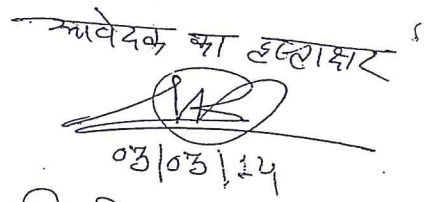 आवेदक का हस्ताक्षर
03/03/14